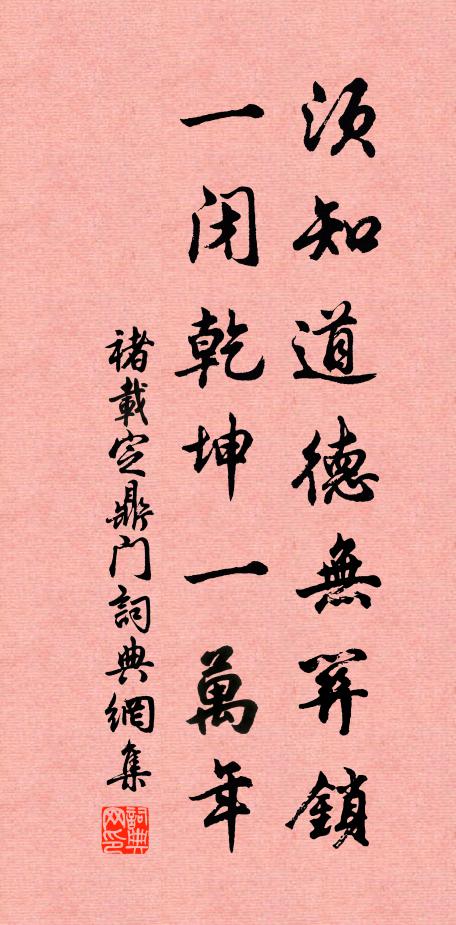 須知道德無關鎖
一闭乾坤一萬年
褚載定鼎門詞典網集
詞典网印